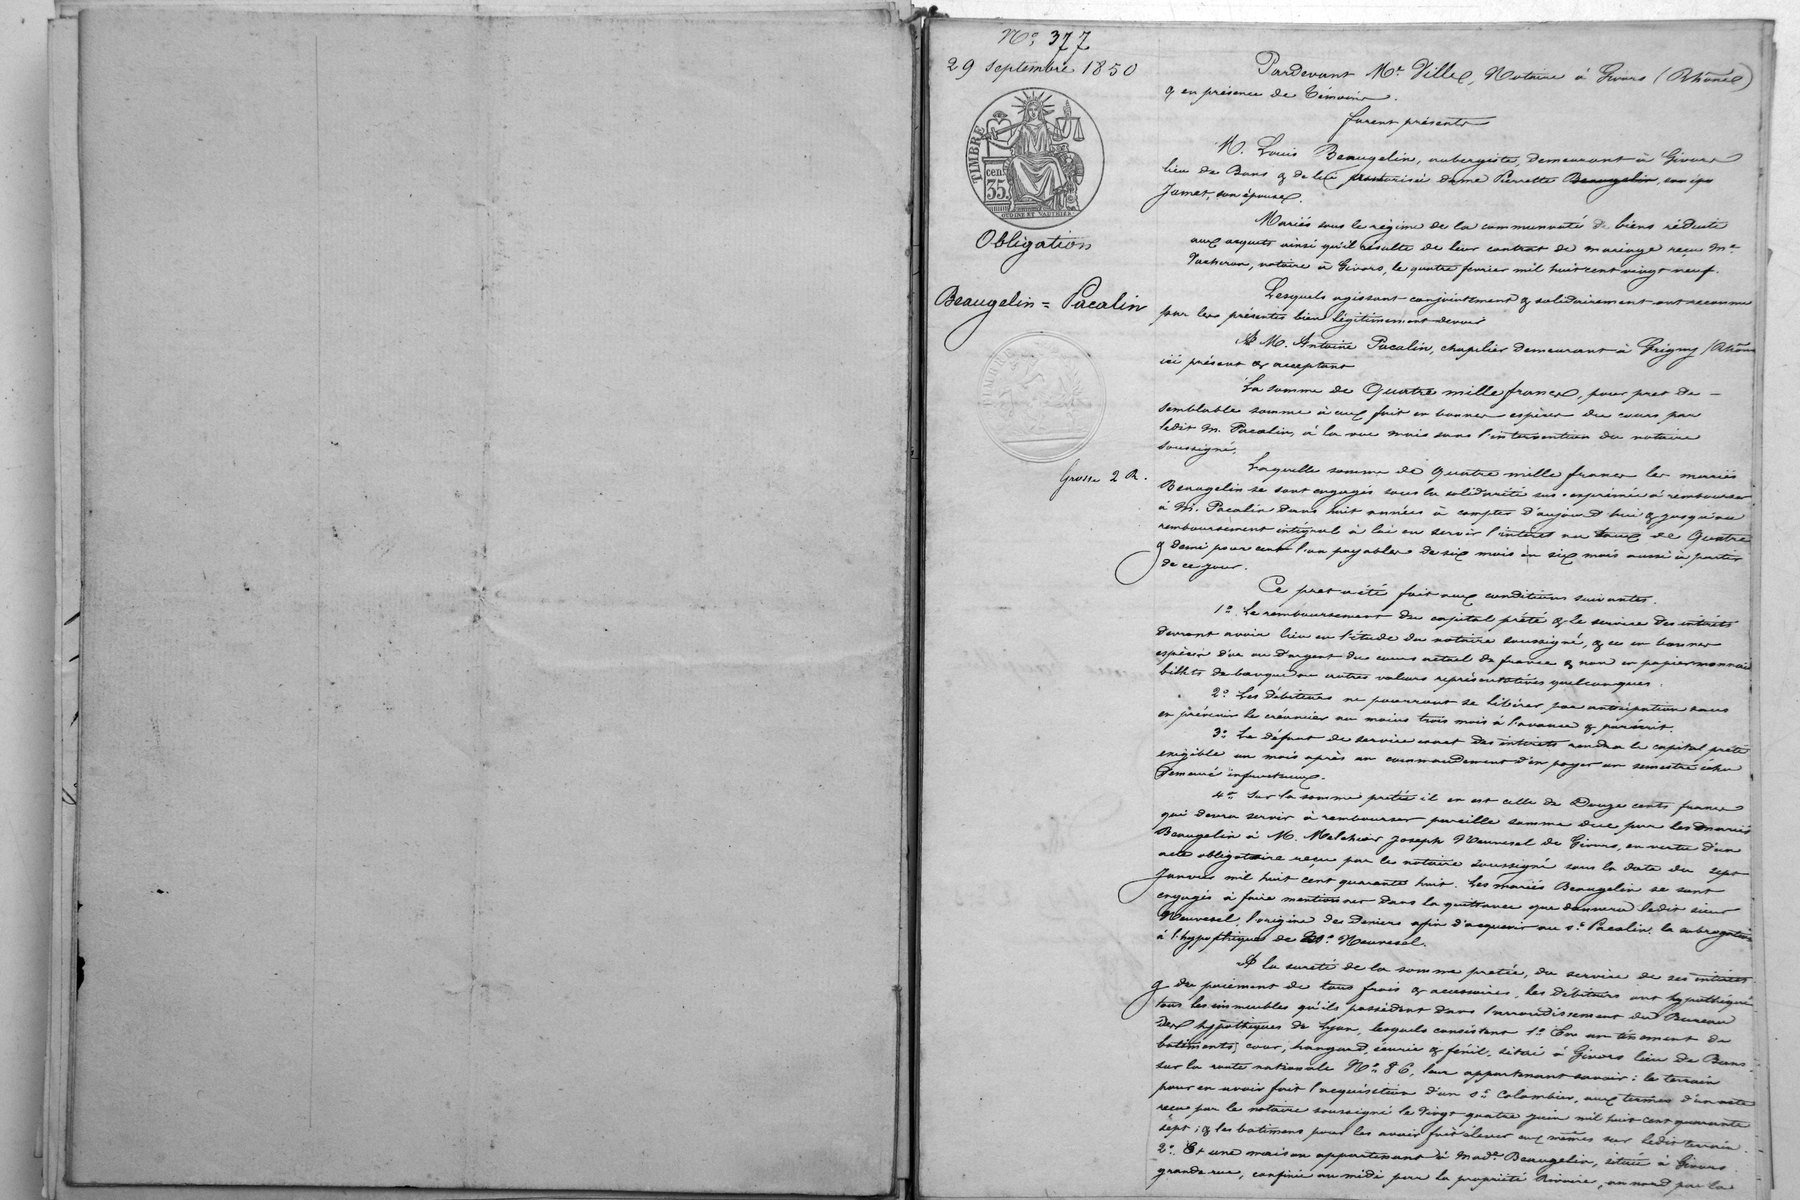 N.o 377
29 Septembre 1850
TIMBRE
cen.
35.
OUDINE ET VAUTHIER
Obligation
Beaugelin = Pacalin
TIMBRE
Grosse 2 R.
Pardevant Me. Villez, Notaire à Givors (Rhône)
& en présence de témoins.
furent présents
M. Louis Beaugelin, aubergiste, demeurant à Givors
lieu de Bans & de lui autorisée dame Pierrette Beaugelin,
Jamet, son épouse.
Mariés sous le régime de la communauté de biens réduite
aux acquets ainsi qu'il résulte de leur contrat de mariage reçu Me.
notaire à Givors, le quatre fevrier mil huit cent vingt neuf.
Lesquels agissant conjointement & solidairement ont reconnu
par les présentes bien légitimement devoir
A M. Antoine Pacalin, chapelier demeurant à Grigny (Rhône
ici présent & acceptant
La somme de Quatre mille francs, pour pret de
semblable somme à eux fait en bonnes espèces du cours par
ledit M. Pacalin, à la vue mais sans l'intervention du notaire
soussigné.
Laquelle somme de quatre mille francs les mariés
Beaugelin se sont engagés sous la solidarité sus-exprimée à rembourser
à M. Pacalin dans huit années à compter d'aujourd'hui & jusqu'au
remboursement intégral à lui en servir l'intérêt au taux de Quatre
& demi pour cent l'an payables de six mois en six mois aussi à partir
de ce jour.
Ce pret a été fait aux conditions suivantes.
1.o Le remboursement du capital prêté & le service des intérêts
devront avoir lieu en l'étude du notaire soussigné, & ce en bonnes
espèces d'or ou d'argent du cours actuel de france & non en papier monnaie
billets de banque ou autres valeurs représentatives quelconques.
2.o Les débiteurs ne pourront se libérer par anticipation sans
en prévenir le créancier au moins trois mois à l'avance & par écrit.
3.o Le défaut de service exact des intérêts rendra le capital prêté
exigible un mois après un commandement d'en payer un semestre échu
demeuré infructueux.
4.o Sur la somme prêtée il en est celle de Douze cents francs
qui devra servir à rembourser pareille somme due par les mariés
Beaugelin à M. Melchior Joseph Neuvesel de Givors, en vertu d'un
acte obligatoire reçu par le notaire soussigné sous la date du sept
Janvier mil huit cent quarante huit. Les mariés Beaugelin se sont
engagés à faire mentionner dans la quittance que donnera ledit sieur
Neuvesel, l'origine des deniers afin d'acquérir au sr. Pacalin, la subrogation
à l'hypothèque de Neuvesel.
A la sureté de la somme pretée, du service de ses intérêts
& du paiement de tous frais & accessoires, les débiteurs ont hypothéqué
tous les immeubles qu'ils possèdent dans l'arrondissement du Bureau
des hypothèques de Lyon, lesquels consistent 1.o En un tènement de
batiments, cour, hangard, écurie & fénil, situé à Givors lieu de Bans
sur la route nationale N.o 86, leur appartenant savoir: le terrain
pour en avoir fait l'acquisition d'un sr. Colombier, aux termes d'un acte
reçu par le notaire soussigné le vingt quatre juin mil huit cent quarante
sept; & les batimens pour les avoir fait élever eux mêmes sur ledit terrain.
2.o Et une maison appartenant à made. Beaugelin, située à Givors
grande rue, confinée au midi par la propriété au nord par la